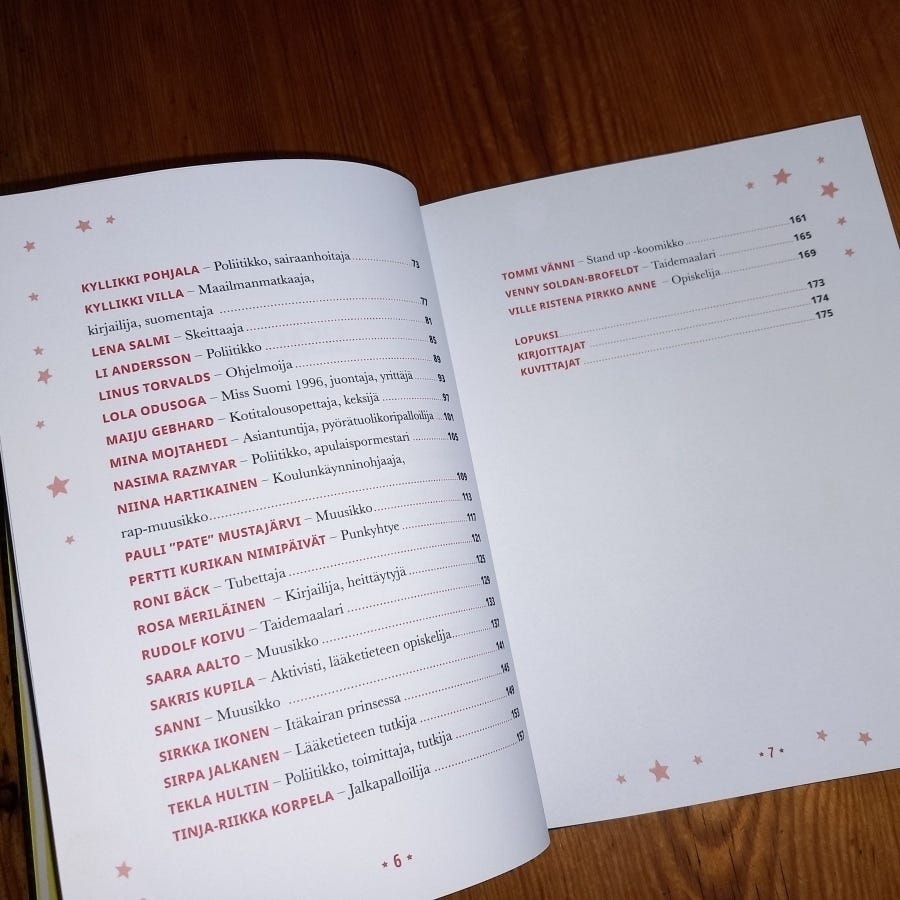 KYLLIKKI POHJALA – Poliitikko, sairaanhoitaja 73
KYLLIKKI VILLA – Maailmanmatkaaja,
kirjailija, suomentaja 77
LENA SALMI – Skeittaaja 81
LI ANDERSSON – Poliitikko 85
LINUS TORVALDS – Ohjelmoija 89
LOLA ODUSOGA – Miss Suomi 1996, juontaja, yrittäjä 93
MAIJU GEBHARD – Kotitalousopettaja, keksijä 97
MINA MOJTAHEDI – Asiantuntija, pyörätuolikoripalloilija 101
NASIMA RAZMYAR – Poliitikko, apulaispormestari 105
NIINA HARTIKAINEN – Koulunkäynninohjaaja,
rap-muusikko 109
PAULI "PATE" MUSTAJÄRVI – Muusikko 113
PERTTI KURIKAN NIMIPÄIVÄT – Punkyhtye 117
RONI BÄCK – Tubettaja 121
ROSA MERILÄINEN – Kirjailija, heittäytyjä 125
RUDOLF KOIVU – Taidemaalari 129
SAARA AALTO – Muusikko 133
SAKRIS KUPILA – Aktivisti, lääketieteen opiskelija 137
SANNI – Muusikko 141
SIRKKA IKONEN – Itäkairan prinsessa 145
SIRPA JALKANEN – Lääketieteen tutkija 149
TEKLA HULTIN – Poliitikko, toimittaja, tutkija 153
TINJA-RIIKKA KORPELA – Jalkapalloilija 157
6
TOMMI VÄNNI – Stand up -koomikko 161
VENNY SOLDAN-BROFELDT – Taidemaalari 165
VILLE RISTENA PIRKKO ANNE – Opiskelija 169
LOPUKSI 173
KIRJOITTAJAT 174
KUVITTAJAT 175
7